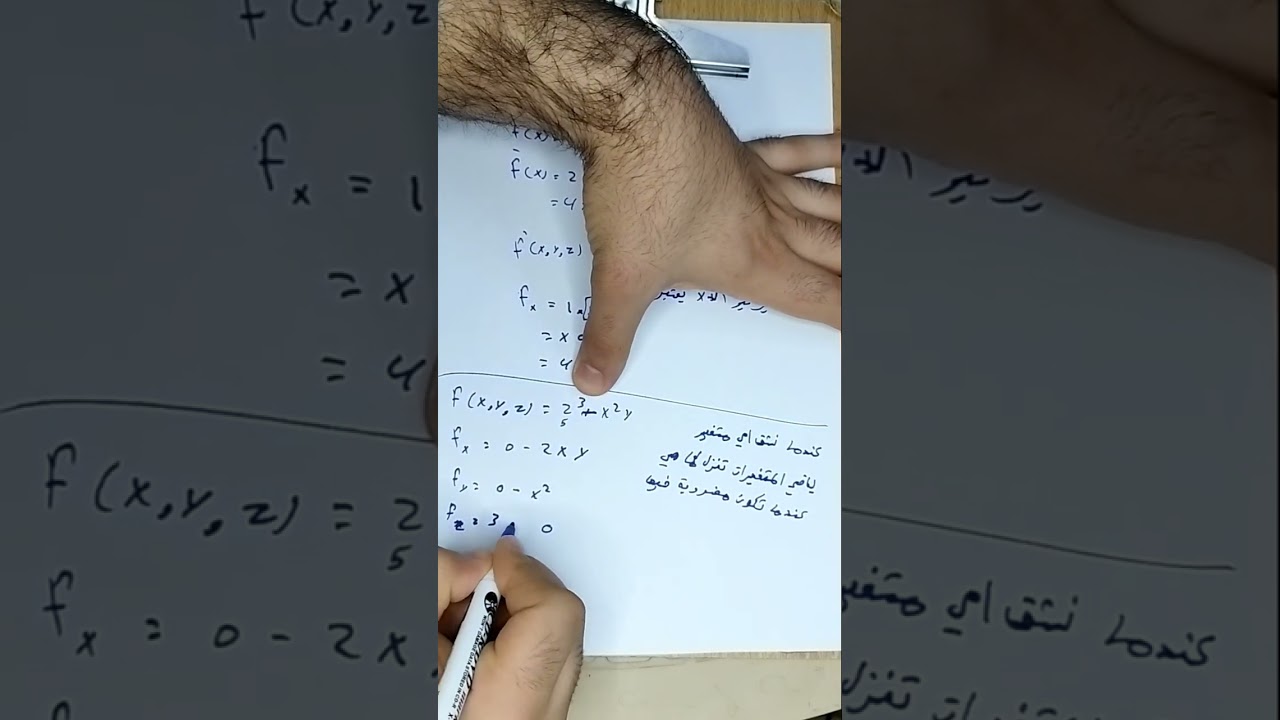 f(x)
f(x) = 2
= 4
f(x,y,z)
fx = 1
= x
= 4
f(x,y,z) = z³ + x²y
5
fx = 0 - 2xy
fy = 0 - x²
fz = 3 0
عندما نشتق اي متغير
باقي المتغيرات تنزل كما هي
عندما تكون مضروبة فيها